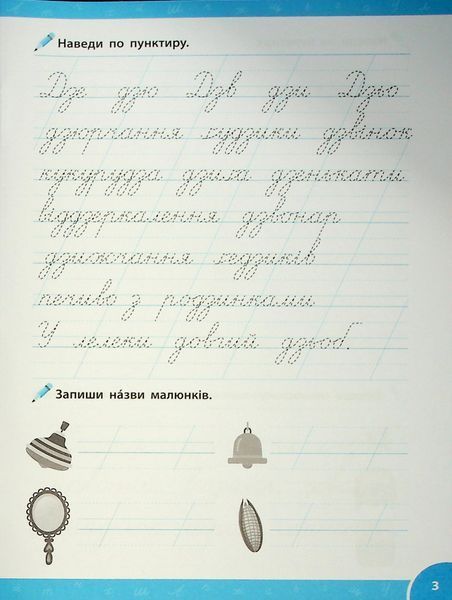 Наведи по пунктиру.
Дзе дзю Дзв дзи Дзю
дзюрчання ґудзики дзвінок
кукурудза дзиґа дзенькати
віддзеркалення дзвонар
дзижчання ґедзиків
печиво з родзинками
У лелеки довгий дзьоб.
Запиши на́зви малюнків.
3